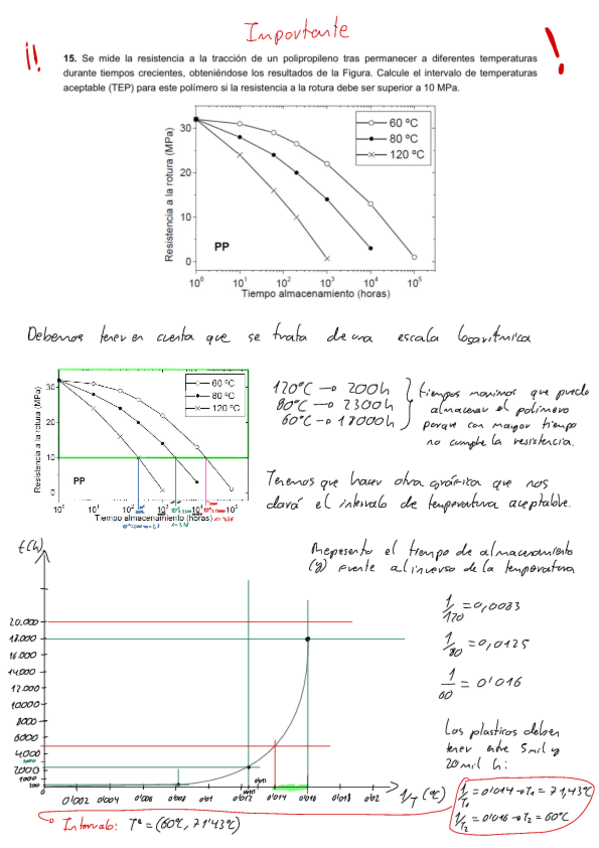 Importante
¡¡ !
15. Se mide la resistencia a la tracción de un polipropileno tras permanecer a diferentes temperaturas
durante tiempos crecientes, obteniéndose los resultados de la Figura. Calcule el intervalo de temperaturas
aceptable (TEP) para este polímero si la resistencia a la rotura debe ser superior a 10 MPa.
Resistencia a la rotura (MPa)
30
20
10
0
60 ºC
80 ºC
120 ºC
PP
10⁰ 10¹ 10² 10³ 10⁴ 10⁵
Tiempo almacenamiento (horas)
Debemos tener en cuenta que se trata de una escala logarítmica
Resistencia a la rotura (MPa)
30
20
10
0
60 ºC
80 ºC
120 ºC
PP
10⁰ 10¹ 10² 10³ 10⁵
Tiempo almacenamiento (horas)
120ºC → 200h
80ºC → 2300h
60ºC → 18000h
tiempos maximos que puedo
almacenar el polimero
porque con mayor tiempo
no cumple la resistencia.
Tenemos que hacer otra gráfica que nos
dará el intervalo de temperatura aceptable.
Represento el tiempo de almacenamiento
(y) frente al inverso de la temperatura
1/120 = 0,0083
1/80 = 0,0125
1/60 = 0'016
Los plasticos deben
tener entre 5mil y
20mil h:
1/T₁ = 0'014 → T₁ = 71,43ºC
1/T₂ = 0'016 → T₂ = 60ºC
t(h)
20.000
18.000
16.000
14.000
12.000
10000
8000
6000
4.000
2000
1000
200
0
0'002 0'004 0'006 0'008 0'012 0'014 0'016 0'018 0'02
1/T (ºC)
Intervalo: Tª = (60ºC, 71'43ºC)